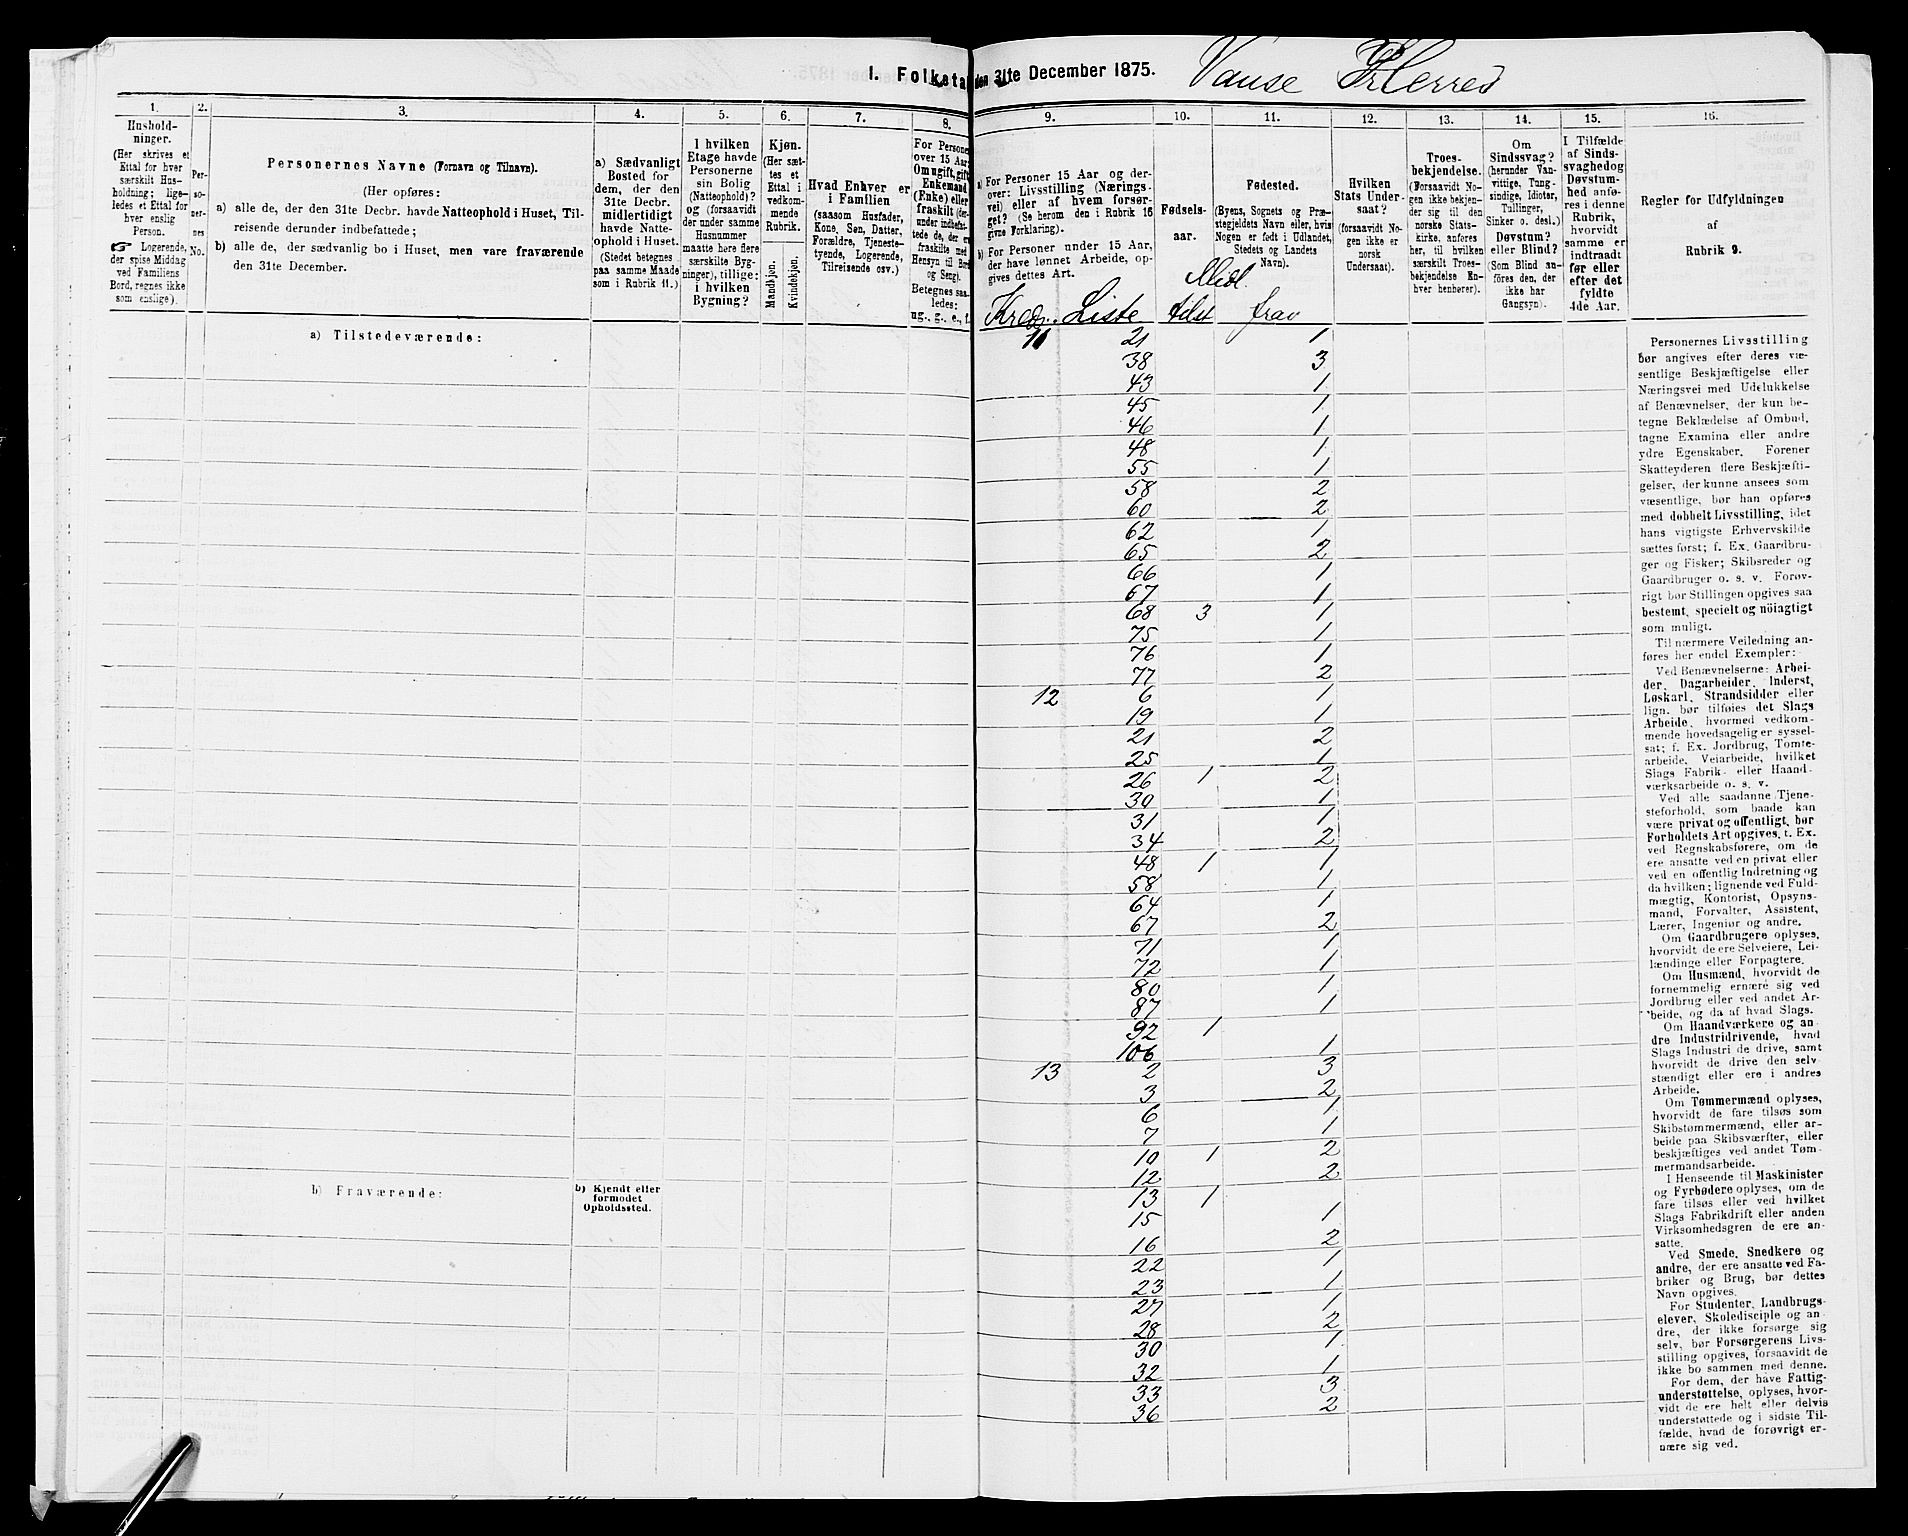 I. Folketal den 31te December 1875.
Vanse Herred
1.
Hushold-
ninger.
(Her skrives et
Ettal for hver
særskilt Hus-
holdning; lige-
ledes et Ettal for
hver enslig
Person.
☞ Logerende,
der spise Middag
ved Familiens
Bord, regnes ikke
som enslige).
2.
Per-
so-
ner-
nes
No.
3.
Personernes Navne (Fornavn og Tilnavn).
(Her opføres:
a) alle de, der den 31te Decbr. havde Natteophold i Huset, Til-
reisende derunder indbefattede;
b) alle de, der sædvanlig bo i Huset, men vare fraværende
den 31te December.
4.
a) Sædvanligt
Bosted for
dem, der den
31te Decbr.
midlertidigt
havde Natte-
ophold i Huset.
(Stedet betegnes
paa samme Maade
som i Rubrik 11.)
5.
I hvilken
Etage havde
Personerne
sin Bolig
(Natteophold)?
og (forsaavidt
der under samme
Husnummer
maatte høre flere
særskilte Byg-
ninger), tillige:
i hvilken
Bygning?
6.
Kjøn.
(Her sæt-
tes et
Ettal i
vedkom-
mende
Rubrik.
Mandkjøn.
Kvindekjøn.
7.
Hvad Enhver er
i Familien
(saasom Husfader,
Kone, Søn, Datter,
Forældre, Tjeneste-
tyende, Logerende,
Tilreisende osv.)
8.
For Personer
over 15 Aar:
Om ugift, gift,
Enkemand
(Enke) eller
fraskilt (der-
under indbefat-
tede de, der er
fraskilte med
Hensyn til Bord
og Seng).
Betegnes saa-
ledes:
ug., g., e., f.
9.
a) For Personer 15 Aar og der-
over: Livsstilling (Nærings-
vei) eller af hvem forsør-
get? (Se herom den i Rubrik 16
givne Forklaring).
b) For Personer under 15 Aar,
der have lønnet Arbeide, op-
gives dettes Art.
10.
Fødsels-
aar.
11.
Fødested.
(Byens, Sognets og Præ-
stegjeldets Navn eller, hvis
Nogen er født i Udlandet,
Stedets og Landets
Navn).
12.
Hvilken
Stats Under-
saat?
(forsaavidt No-
gen ikke er
norsk
Undersaat).
13.
Troes-
bekjendelse.
(Forsaavidt No-
gen ikke bekjen-
der sig til den
norske Stats-
kirke, anføres
her, til hvilken
særskilt Troes-
bekjendelse En-
hver henhører).
14.
Om
Sindssvag?
(herunder Van-
vittige, Tung-
sindige, Idioter,
Tullinger,
Sinker o. desl.)
Døvstum?
eller Blind?
(Som Blind an-
føres den, der
ikke har
Gangsyn).
15.
I Tilfælde
af Sinds-
svaghed og
Døvstum-
hed anfø-
res i denne
Rubrik,
hvorvidt
samme er
indtraadt
før eller
efter det
fyldte
4de Aar.
16.
Regler for Udfyldningen
af
Rubrik 9.
Midl.
Kreds. Liste tilst frav
a) Tilstedeværende:
11 21 1
38 3
43 1
45 1
46 1
48 1
55 1
58 2
60 2
62 1
65 2
66 1
67 1
68 3 1
75 1
76 1
77 2
12 6 1
19 1
21 2
25 1
26 1 2
30 1
31 1
34 2
48 1 1
58 1
64 1
67 2
71 1
72 1
80 1
87 1
92 1
106 1
13 2 3
3 2
6 1
7 1
10 1 2
12 2
b) Fraværende:
b) Kjendt eller
formodet
Opholdssted.
13 1
15 1
16 2
22 1
23 1
27 1
28 2
30 1
32 1
33 3
36 2
Personernes Livsstilling
bør angives efter deres væ-
sentlige Beskjæftigelse eller
Næringsvei med Udelukkelse
af Benævnelser, der kun be-
tegne Beklædelse af Ombud,
tagne Examina eller andre
ydre Egenskaber. Forener
Skatteyderen flere Beskjæfti-
gelser, der kunne ansees som
væsentlige, bør han opføres
med dobbelt Livsstilling, idet
hans vigtigste Erhvervskilde
sættes først; f. Ex. Gaardbru-
ger og Fisker; Skibsreder og
Gaardbruger o. s. v. Forøv-
rigt bør Stillingen opgives saa
bestemt, specielt og nöiagtigt
som muligt.
Til nærmere Veiledning an-
føres her endel Exempler:
Ved Benævnelserne: Arbei-
der, Dagarbeider, Inderst,
Løskarl, Strandsidder eller
lign. bør tilføies det Slags
Arbeide, hvormed vedkom-
mende hovedsagelig er syssel-
sat; f. Ex. Jordbrug, Tomte-
arbeide, Veiarbeide, hvilket
Slags Fabrik- eller Haand-
værksarbeide o. s. v.
Ved alle saadanne Tjene-
steforhold, som baade kan
være privat og offentligt, bør
Forholdets Art opgives, t. Ex.
ved Regnskabsførere, om de
ere ansatte ved en privat eller
ved en offentlig Indretning og
da hvilken; lignende ved Fuld-
mægtig, Kontorist, Opsyns-
mand, Forvalter, Assistent,
Lærer, Ingeniør og andre.
Om Gaardbrugere oplyses,
hvorvidt de ere Selveiere, Lei-
lændinge eller Forpagtere.
Om Husmænd, hvorvidt de
fornemmelig ernære sig ved
Jordbrug eller ved andet Ar-
beide, og da af hvad Slags.
Om Haandværkere og an
dre Industridrivende, hvad
Slags Industri de drive, samt
hvorvidt de drive den selv
stændigt eller ere i andres
Arbeide.
Om Tømmermænd oplyses,
hvorvidt de fare tilsøs som
Skibstømmermænd, eller ar-
beide paa Skibsværfter, eller
beskjæftiges ved andet Tøm-
mermandsarbeide.
I Henseende til Maskinister
og Fyrbødere oplyses, om de
fare tilsøs eller ved hvilket
Slags Fabrikdrift eller anden
Virksomhedsgren de ere an-
satte.
Ved Smede, Snedkere og
andre, der ere ansatte ved Fa-
briker og Brug, bør dettes
Navn opgives.
For Studenter, Landbrugs-
elever, Skoledisciple og an-
dre, der ikke forsørge sig
selv, bør Forsørgerens Livs-
stilling opgives, forsaavidt de
ikke bo sammen med denne.
For dem, der have Fattig-
understøttelse, oplyses, hvor-
vidt de ere helt eller delvis
understøttede og i sidste Til-
fælde, hvad de forøvrigt er-
nære sig ved.